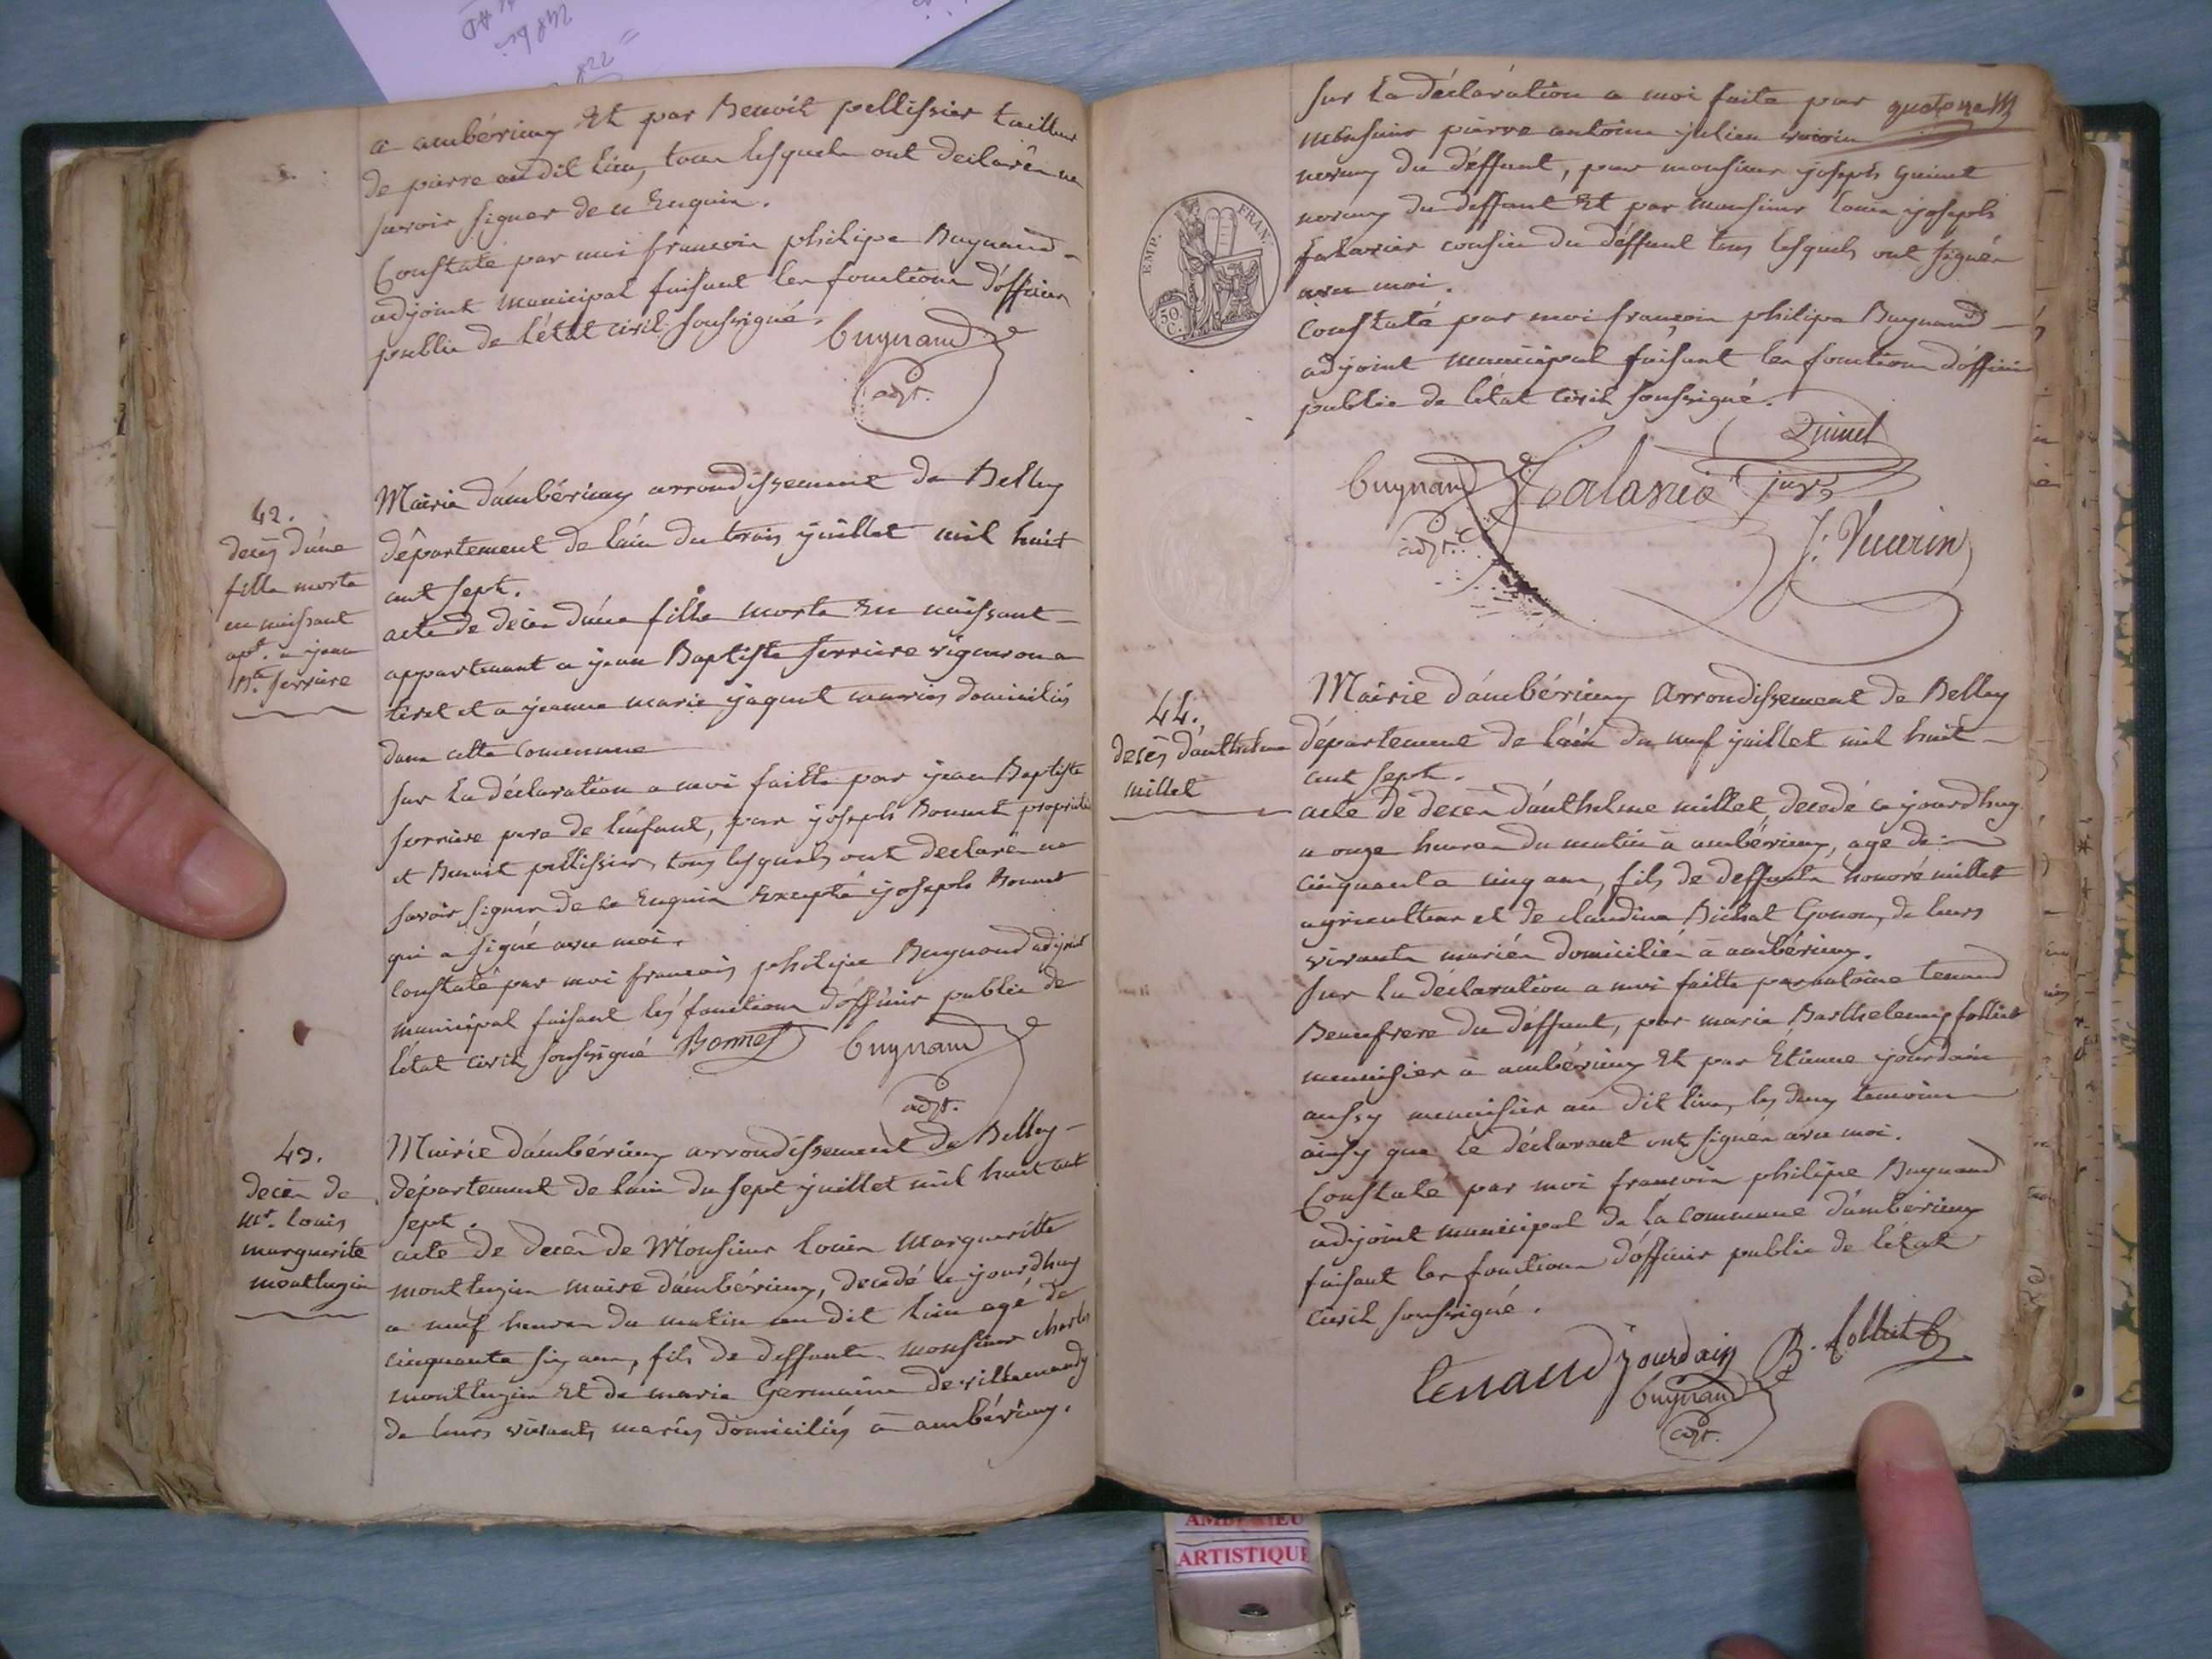 à ambérieux Et par Benoit pellissier tailleur
de pierre au dit lieu, tous lesquels ont declarés ne
savoir signer de ce Enquis.
Constaté par moi françois philipe Bugnand
adjoint municipal faisant les fonctions d'officier
public de l'état civil soussigné.
bugnand
adjt.
42.
decès d'une
fille morte
en naissant
apt. a jean
Bte. ferriere
Mairie d'ambérieux arrondissement de Belley
département de l'ain du trois juillet mil huit
cent sept.
acte de decès d'une fille morte en naissant
appartenant a jean Baptiste ferriere vigneron a
tiret et a jeanne marie jaquet mariés domiciliés
dans cette Commune
sur la déclaration a moi faitte par jean Baptiste
ferriere pere de l'enfant, par joseph Bonnet propriéte
et Benoit pellissier, tous lesquels ont declaré ne
savoir signer de ce Enquis Excepté joseph Bonnet
qui a signé avec moi.
Constaté par moi françois philipe Bugnand adjoint
municipal faisant les fonctions d'officier public de
l'état civil soussigné Bonnet bugnand
adjt.
43.
decès de
mr. louis
marguerite
montluzin
Mairie d'ambérieux arrondissement de Belley
département de l'ain du sept juillet mil huit cent
sept.
acte de decès de Monsieur louis margueritte
montluzin maire d'ambérieux, decedé ce jourdhuy
a neuf heures du matin au dit lieu agé de
cinquante six ans, fils de deffunts monsieur charles
montluzin Et de marie Germaine devillemandy
de leurs vivants mariés domiciliés à ambérieux.
sur la déclaration a moi faite par
monsieur pierre antoine julien
neveu du déffunt, par monsieur joseph
neveu du déffunt Et par monsieur louis joseph
cousin du déffunt tous lesquels ont signés
avec moi.
Constaté par moi françois philipe Bugnand
adjoint municipal faisant les fonctions d'officier
public de l'état civil soussigné.
EMP. FRAN.
50 C.
bugnand
adjt.
44.
decès d'anthelme
millet
Mairie d'ambérieux arrondissement de Belley
département de l'ain du neuf juillet mil huit
cent sept.
acte de decès d'anthelme millet, decedé ce jourdhuy
a onze heures du matin à ambérieux, agé de
cinquante cinq ans, fils de deffunts honoré millet
agriculteur et de claudine Bichat Gonon, de leurs
vivants mariés domiciliés à ambérieux.
sur la déclaration a moi faitte par antoine tenand
Beaufrere du déffunt, par marie Barthelemy folliet
menuisier à ambérieux Et par Etienne jourdain
aussy menuisier au dit lieu, les deux temoins
ainsy que le déclarant ont signés avec moi.
Constaté par moi françois philipe Bugnand
adjoint municipal de la commune d'ambérieux
faisant les fonctions d'officier public de l'état
civil soussigné.
tenand jourdain B. folliet
bugnand
adjt.
ARTISTIQUE